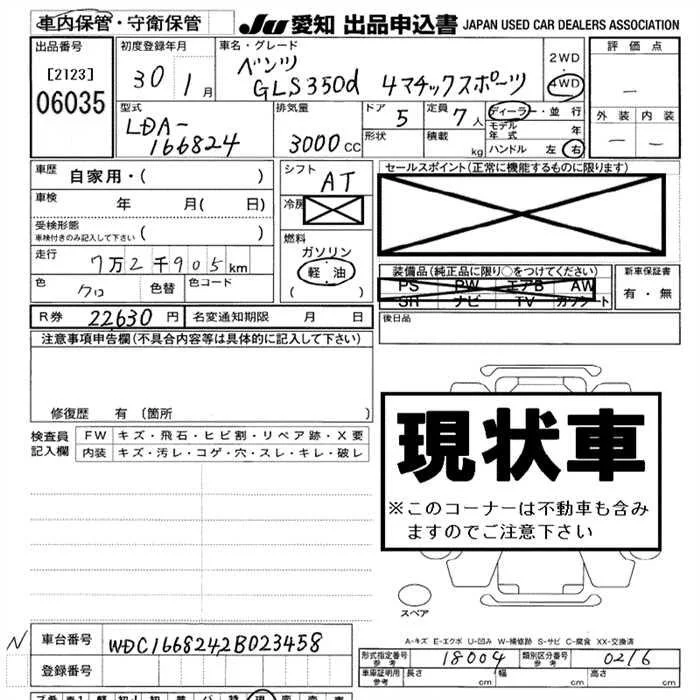 車内保管・守衛保管
JU 愛知 出品申込書 JAPAN USED CAR DEALERS ASSOCIATION
出品番号
[2123]
06035
初度登録年月
30 1月
車名・グレード
ベンツ
GLS350d 4マチックスポーツ
2WD
4WD
評価点
—
外装 内装
— —
型式
LDA-
166824
排気量
3000cc
ドア 5
形状
定員 7人
積載 kg
ディーラー・並行
モデル年式 年
ハンドル 左 右
車歴 自家用・( )
車検 年 月( 日)
受検形態
車検付きのみ記入して下さい ( )
走行 7万2千905km
色 クロ 色替 色コード
シフト AT
冷房
燃料
ガソリン
軽油
( )
セールスポイント(正常に機能するものに限ります)
装備品(純正品に限り○をつけてください)
PS PW エアB AW
SR ナビ TV カワシート
新車保証書
有・無
R券 22630円 名変通知期限 月 日
後日品
注意事項申告欄(不具合内容等は具体的に記入して下さい)
修復歴 有 〔箇所 〕
検査員記入欄
FW キズ・飛石・ヒビ割・リペア跡・X要
内装 キズ・汚レ・コゲ・穴・スレ・キレ・破レ
現状車
※このコーナーは不動車も含み
ますのでご注意下さい
スペア
A-キズ E-エクボ U-凹み W-補修跡 S-サビ C-腐食 XX-交換済
N 車台番号 WDC1668242B023458
登録番号
形式指定番号 参考 18004 類別区分番号 参考 0216
車庫証明用 参考 長さ cm 幅 cm 高さ cm